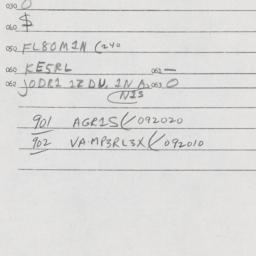 030 0
060 $
050 FL80M1N (240
060 KE5RL 061 —
062 JODR1 1ZDU. 1N A. 063 0
N1S
901 AGR15 (/092020
902 VA.MP3RL3X (/092010